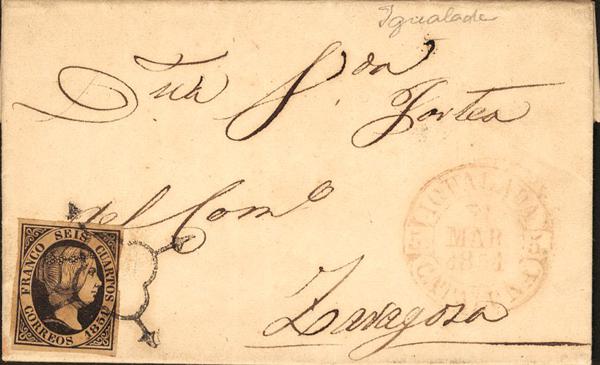 Igualada
Dña
Fortea
del Comº
Zaragosa
IGUALADA
MAR
1851
CATALUÑA
FRANCO SEIS CUARTOS
CORREOS 1851